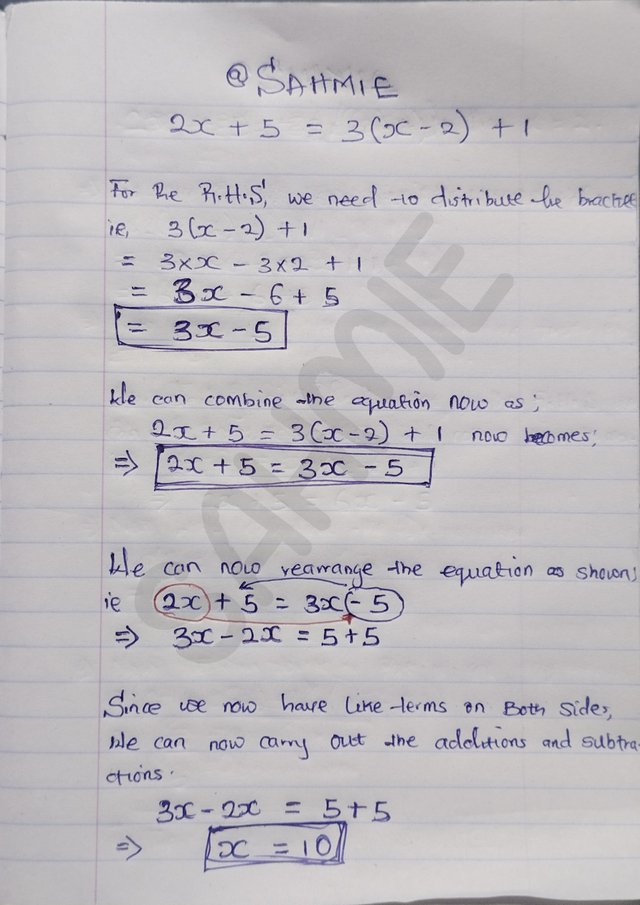 @SAHMIE
2x + 5 = 3(x - 2) + 1
For the R.H.S, we need to distribute the bracket
ie, 3(x - 2) + 1
= 3×x - 3×2 + 1
= 3x - 6 + 5
= 3x - 5
We can combine the equation now as;
2x + 5 = 3(x-2) + 1 now becomes;
⇒ 2x + 5 = 3x - 5
We can now rearrange the equation as shown;
ie 2x + 5 = 3x - 5
⇒ 3x - 2x = 5+5
Since we now have like terms on Both sides,
We can now carry out the additions and subtra-
ctions.
3x - 2x = 5+5
⇒ x = 10
SAHMIE